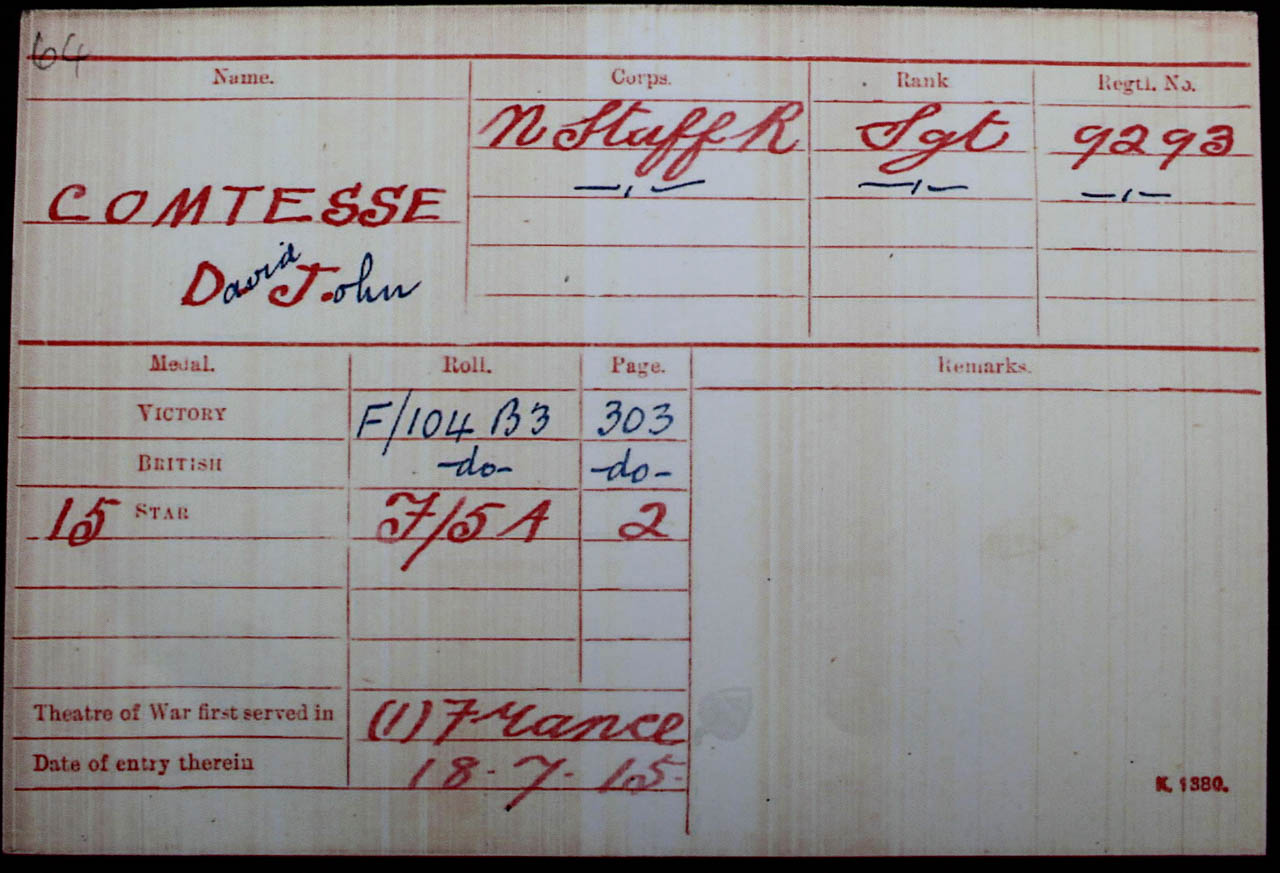 64
Name. Corps. Rank Regtl. No.
N Staff R Sgt 9293
COMTESSE —,,— —,,— —,,—
David John
Medal. Roll. Page. Remarks.
VICTORY F/104 B3 303
BRITISH -do- -do-
15 STAR F/5A 2
Theatre of War first served in (1) France
Date of entry therein 18-7-15-
K. 1380.